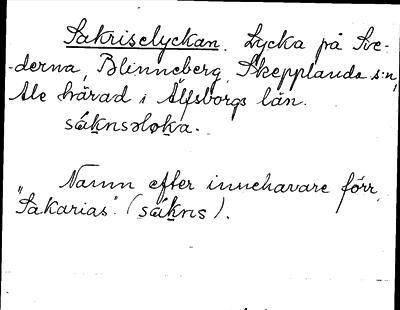 Sakriselyckan. Lycka på Sve-
-derna, Blinneberg, Skepplanda s:n,
Ale härad i Älfsborgs län.
sák̲nsəlok̲a.
Namn efter innehavare förr,
"Sakarias". (sák̲ns).